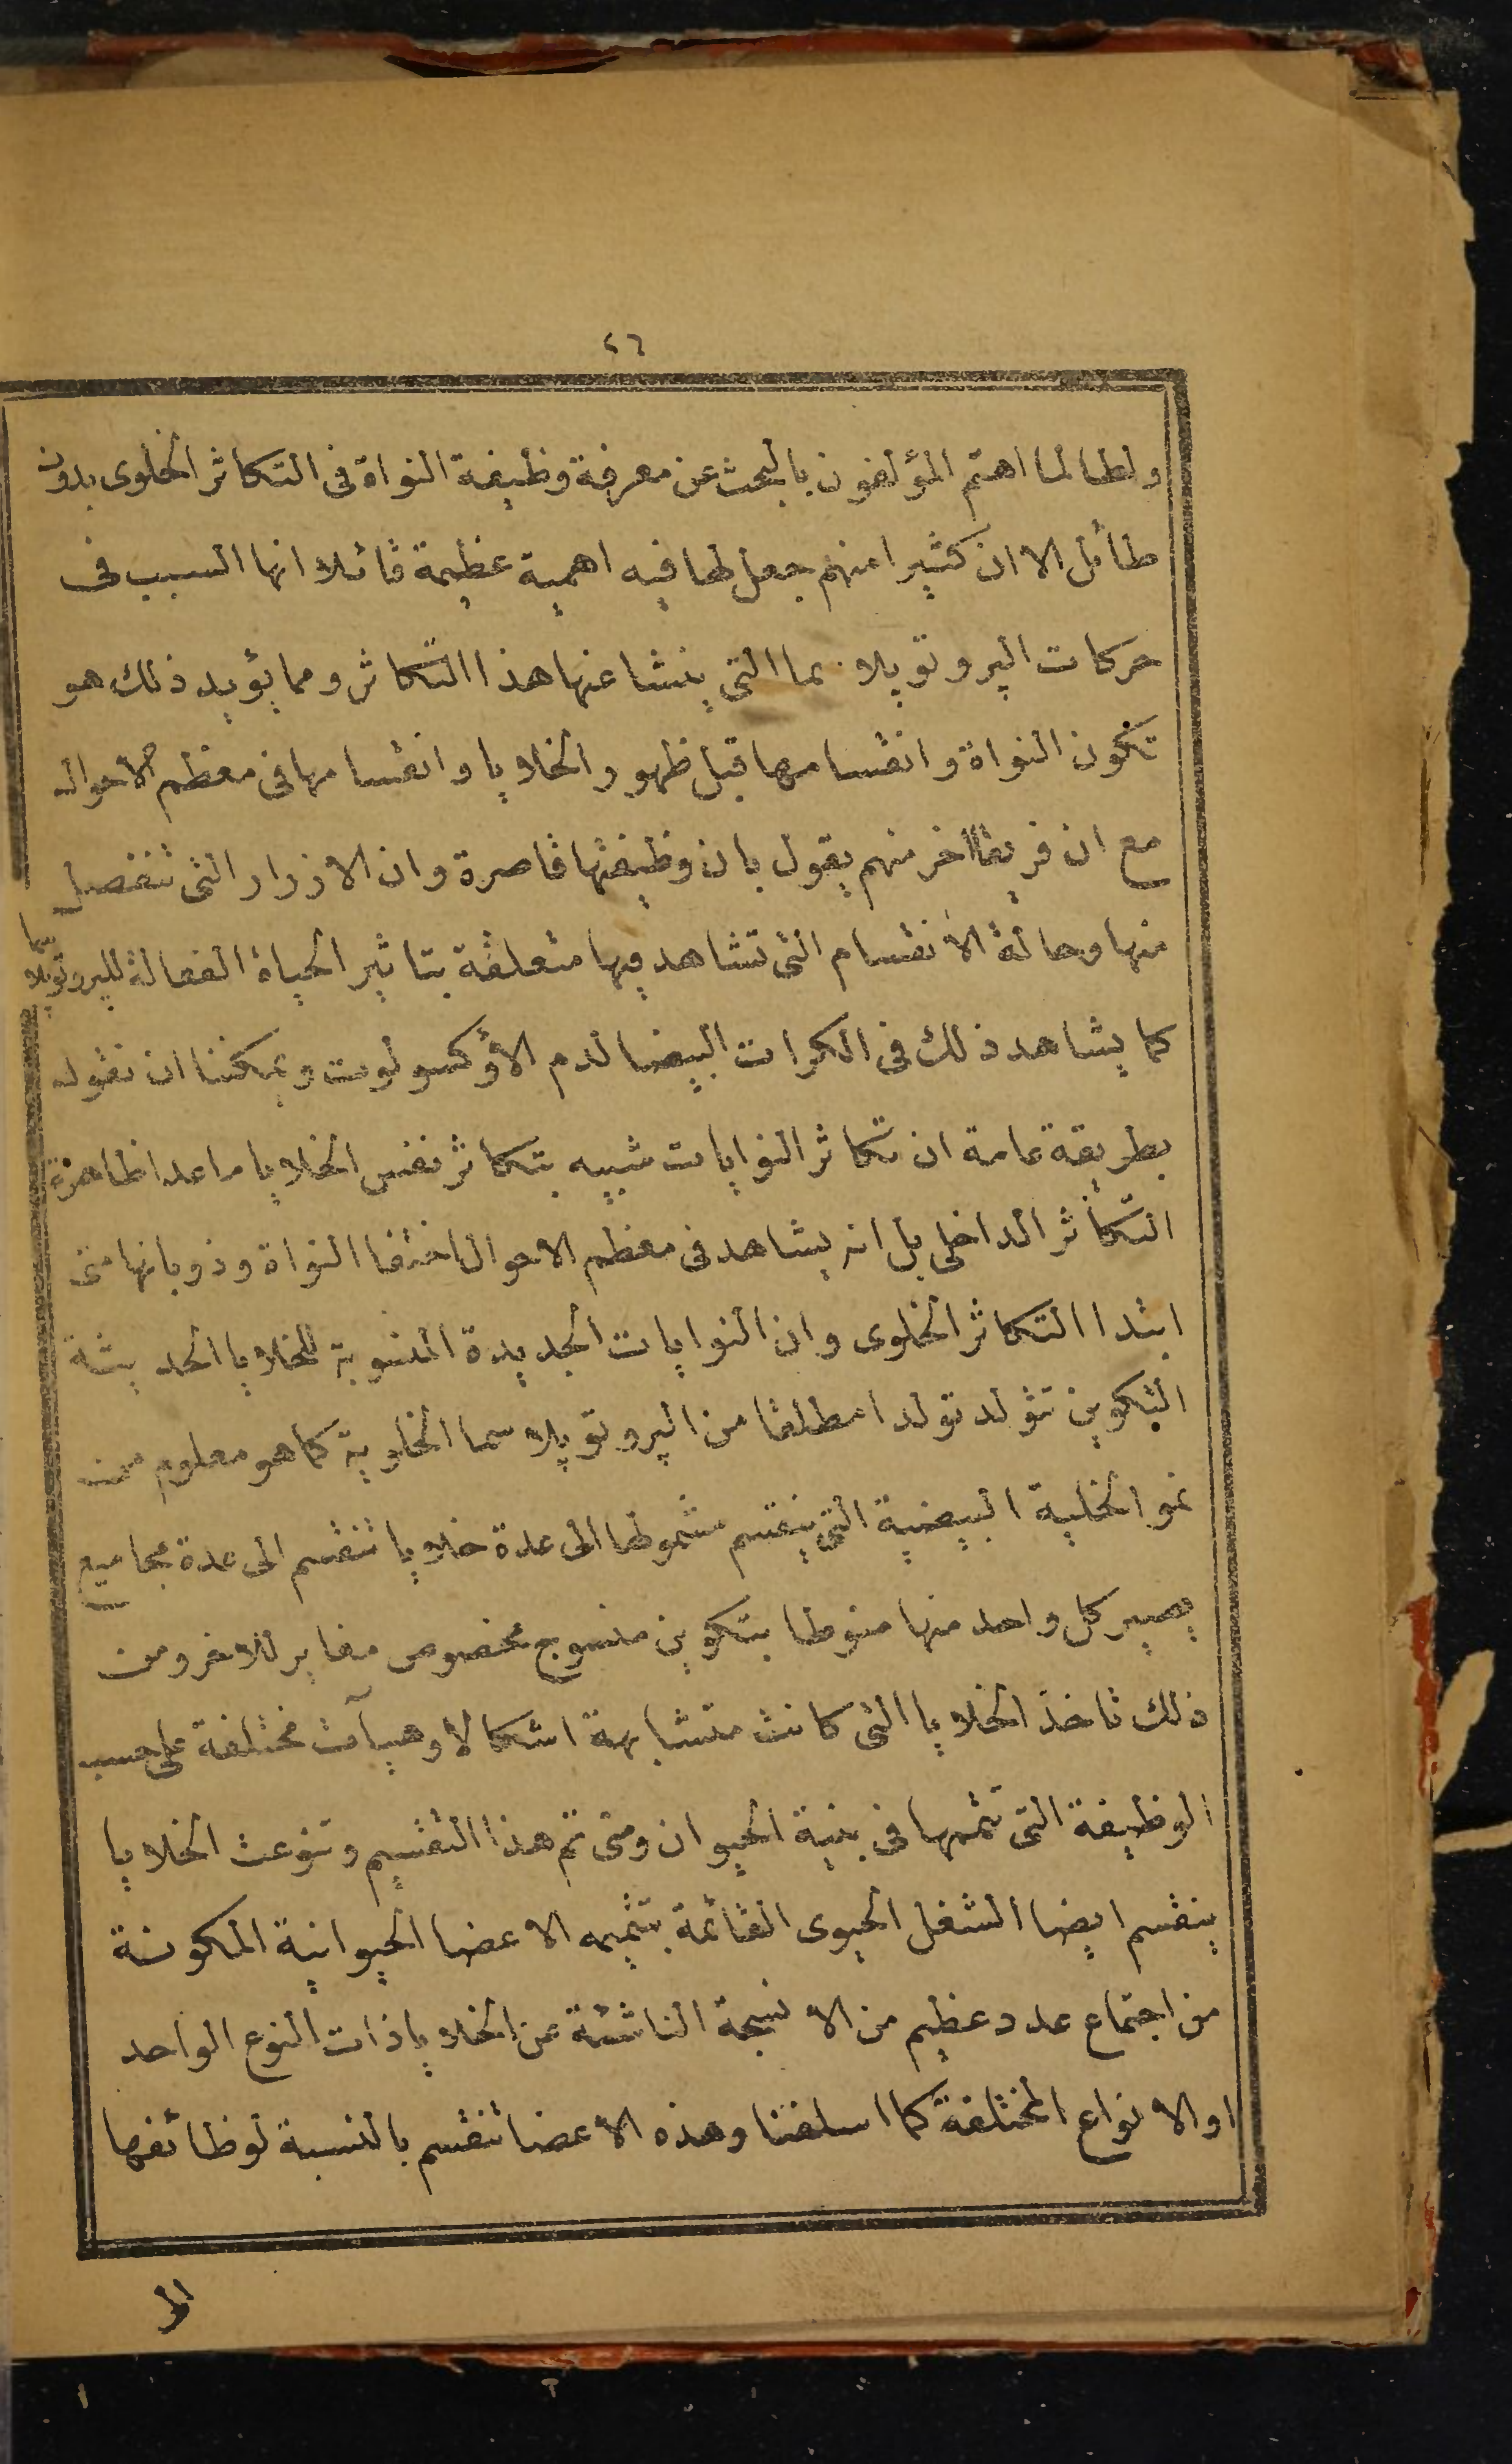 ٤٦
ولطالما اهتم المؤلفون بالبحث عن معرفة وظيفة النواة فى التكاثر الخلوى بدون
طائل الا ان كثيرا منهم جعل لها فيه اهمية عظيمة قائلا انها السبب فى
حركات البروتوپلا ما التى ينشا عنها هذا التكاثر ومما يؤيد ذلك هو
تكون النواة وانقسامها قبل ظهور الخلايا وانقسامها فى معظم الاحوال
مع ان فريقا اخر منهم يقول بان وظيفتها قاصرة وان الازرار التى تنفصل
منها وحالة الانقسام التى تشاهد فيها متعلقة بتاثير الحياة الفعالة للبروتوپلاسما
كما يشاهد ذلك فى الكرات البيضا لدم الأوكسولوت ويمكننا ان نقول
بطريقة عامة ان تكاثر النوايات شبيه بتكاثر نفس الخلايا ما عدا ظاهرة
التكاثر الداخلى بل انه يشاهد فى معظم الاحوال اختفا النواة وذوبانها متى
ابتدا التكاثر الخلوى وان النوايات الجديدة المنسوبة للخلايا الحديثة
التكوين تتولد تولدا مطلقا من البروتوپلاسما الخلوية كما هو معلوم من
نمو الخلية البيضية التى ينقسم مشمولها الى عدة خلايا تنقسم الى عدة مجاميع
يصير كل واحد منها منوطا بتكوين منسوج مخصوص مغاير للاخر ومن
ذلك تاخذ الخلايا التى كانت متشابهة اشكالا وهيآت مختلفة على حسب
الوظيفة التى تتمها فى بنية الحيوان ومتى تم هذا التقسيم وتنوعت الخلايا
ينقسم ايضا الشغل الحيوى القائمة بتتميمه الاعضا الحيوانية المكونة
من اجتماع عدد عظيم من الانسجة الناشئة عن الخلايا ذات النوع الواحد
او الانواع المختلفة كما اسلفنا وهذه الاعضا تنقسم بالنسبة لوظائفها